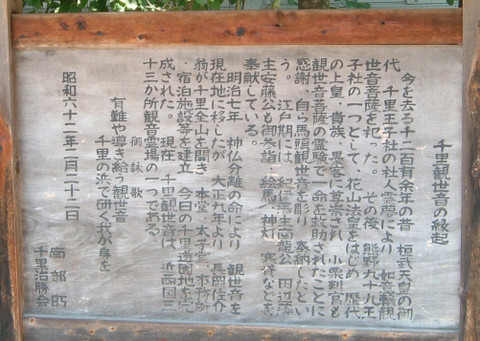 千里観世音の縁起
今を去る千二百有余年の昔 桓武天皇の御
代 千里王子社の社人霊夢により 如意輪観
世音菩薩を祀った。その後 熊野九十九王
子社の一つとして、花山法皇をはじめ 歴代
の上皇・貴族・墨客に尊崇され 小栗判官も
観世音菩薩の霊験で一命を救助されたことに
感謝、自ら馬頭観世音を彫り 奉納したとい
う。 江戸期には 紀伊藩主南龍公 田辺藩
主安藤公も御参詣・絵馬・神灯 などを
奉献している。
明治七年 神仏分離の命により 観世音を
現在地に移したが 大正九年より 長岡佐介
翁が千里全山を開き 本堂・太子堂・事務所
・宿泊施設等を建立 今日の千里遊園地を完
成された。 現在 千里観世音は 近西国三
十三か所観音霊場の一つである。
御詠歌
有難や導き給う観世音
千里の浜で研く我が身を
昭和六十二年二月二十二日
南部町
千里治勝会